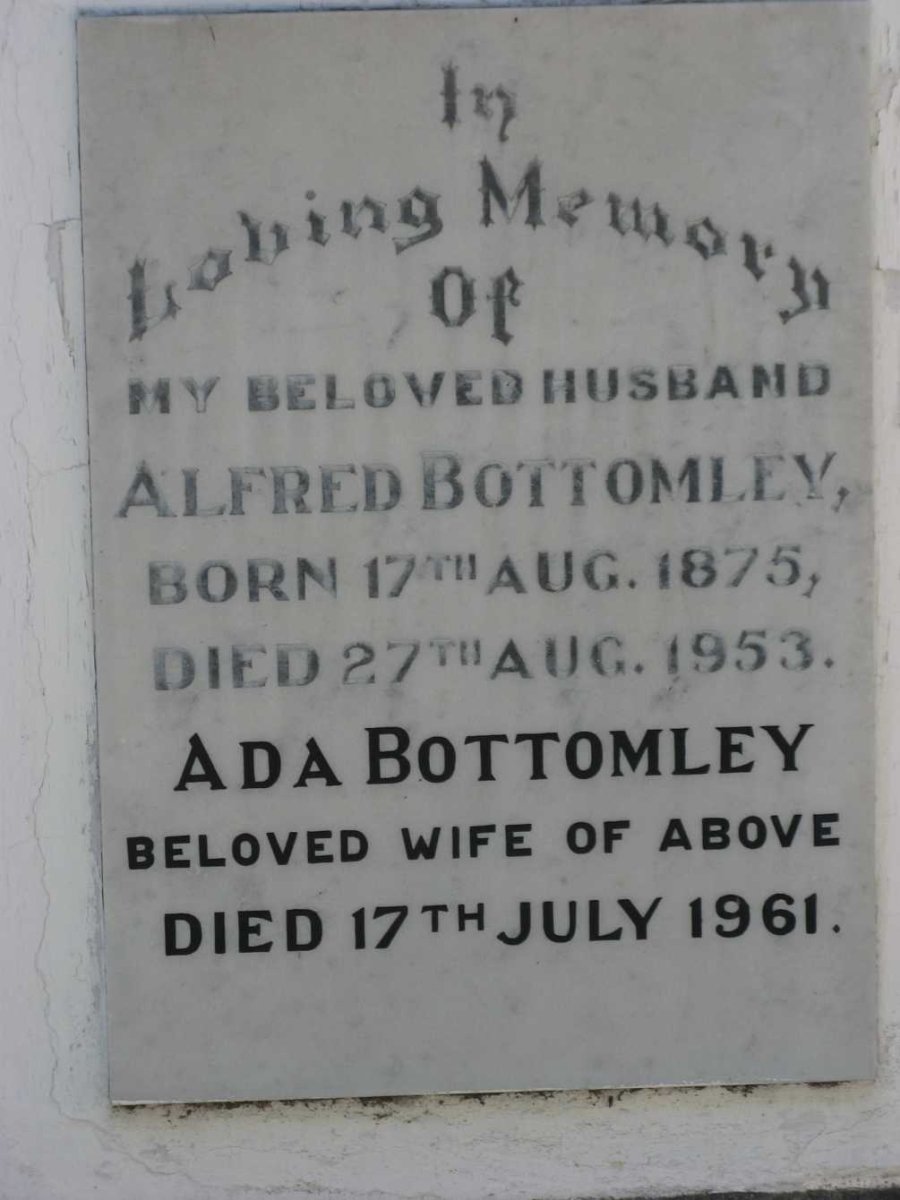 In
Loving Memory
Of
MY BELOVED HUSBAND
ALFRED BOTTOMLEY,
BORN 17TH AUG. 1875,
DIED 27TH AUG. 1953.
ADA BOTTOMLEY
BELOVED WIFE OF ABOVE
DIED 17TH JULY 1961.